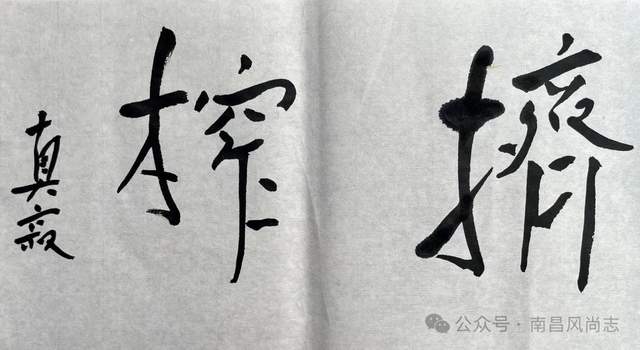 擠榨
真寂
公众号·南昌风尚志